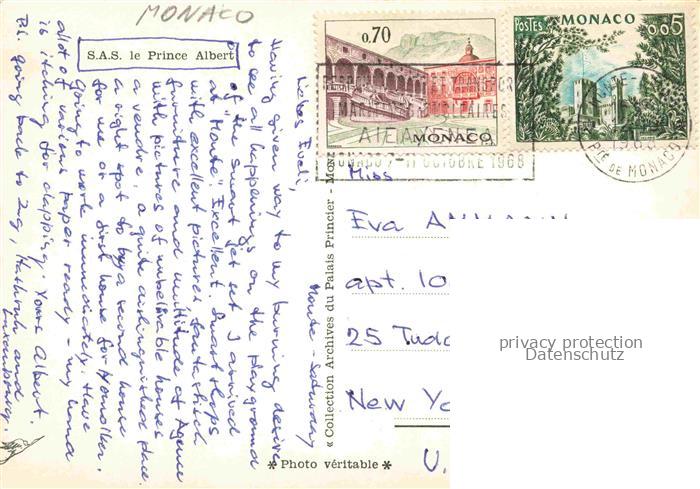 MONACO
S.A.S. le Prince Albert
Monte - Saturday
Liebes Eveli,
Having given way to my burning desire
to see all happenings on the playground
of the smart jet set I arrived
at "Monte" Excellent. Smart shops
with excellent pictures fantastisch
furniture and multitude of Agence
with pictures of unbelivable houses
a vendre, a quite distinguished place
a right spot to buy a second house
for me or a first house for
Going to work immediately. Have
a lot of various paper ready - my hand
is itching for clapping. Yours Albert.
P.S. going back to Zrg, Hathruh and
Luxembourg.
« Collection Archives du Palais Princier - Mona
*Photo véritable*
0.70
MONACO
POSTES
MONACO
0,05
MONACO 7-11 OCTOBRE 1968
PTE DE MONACO
Miss
Eva
apt. 10
25 Tudo
New Yo
U.
privacy protection
Datenschutz